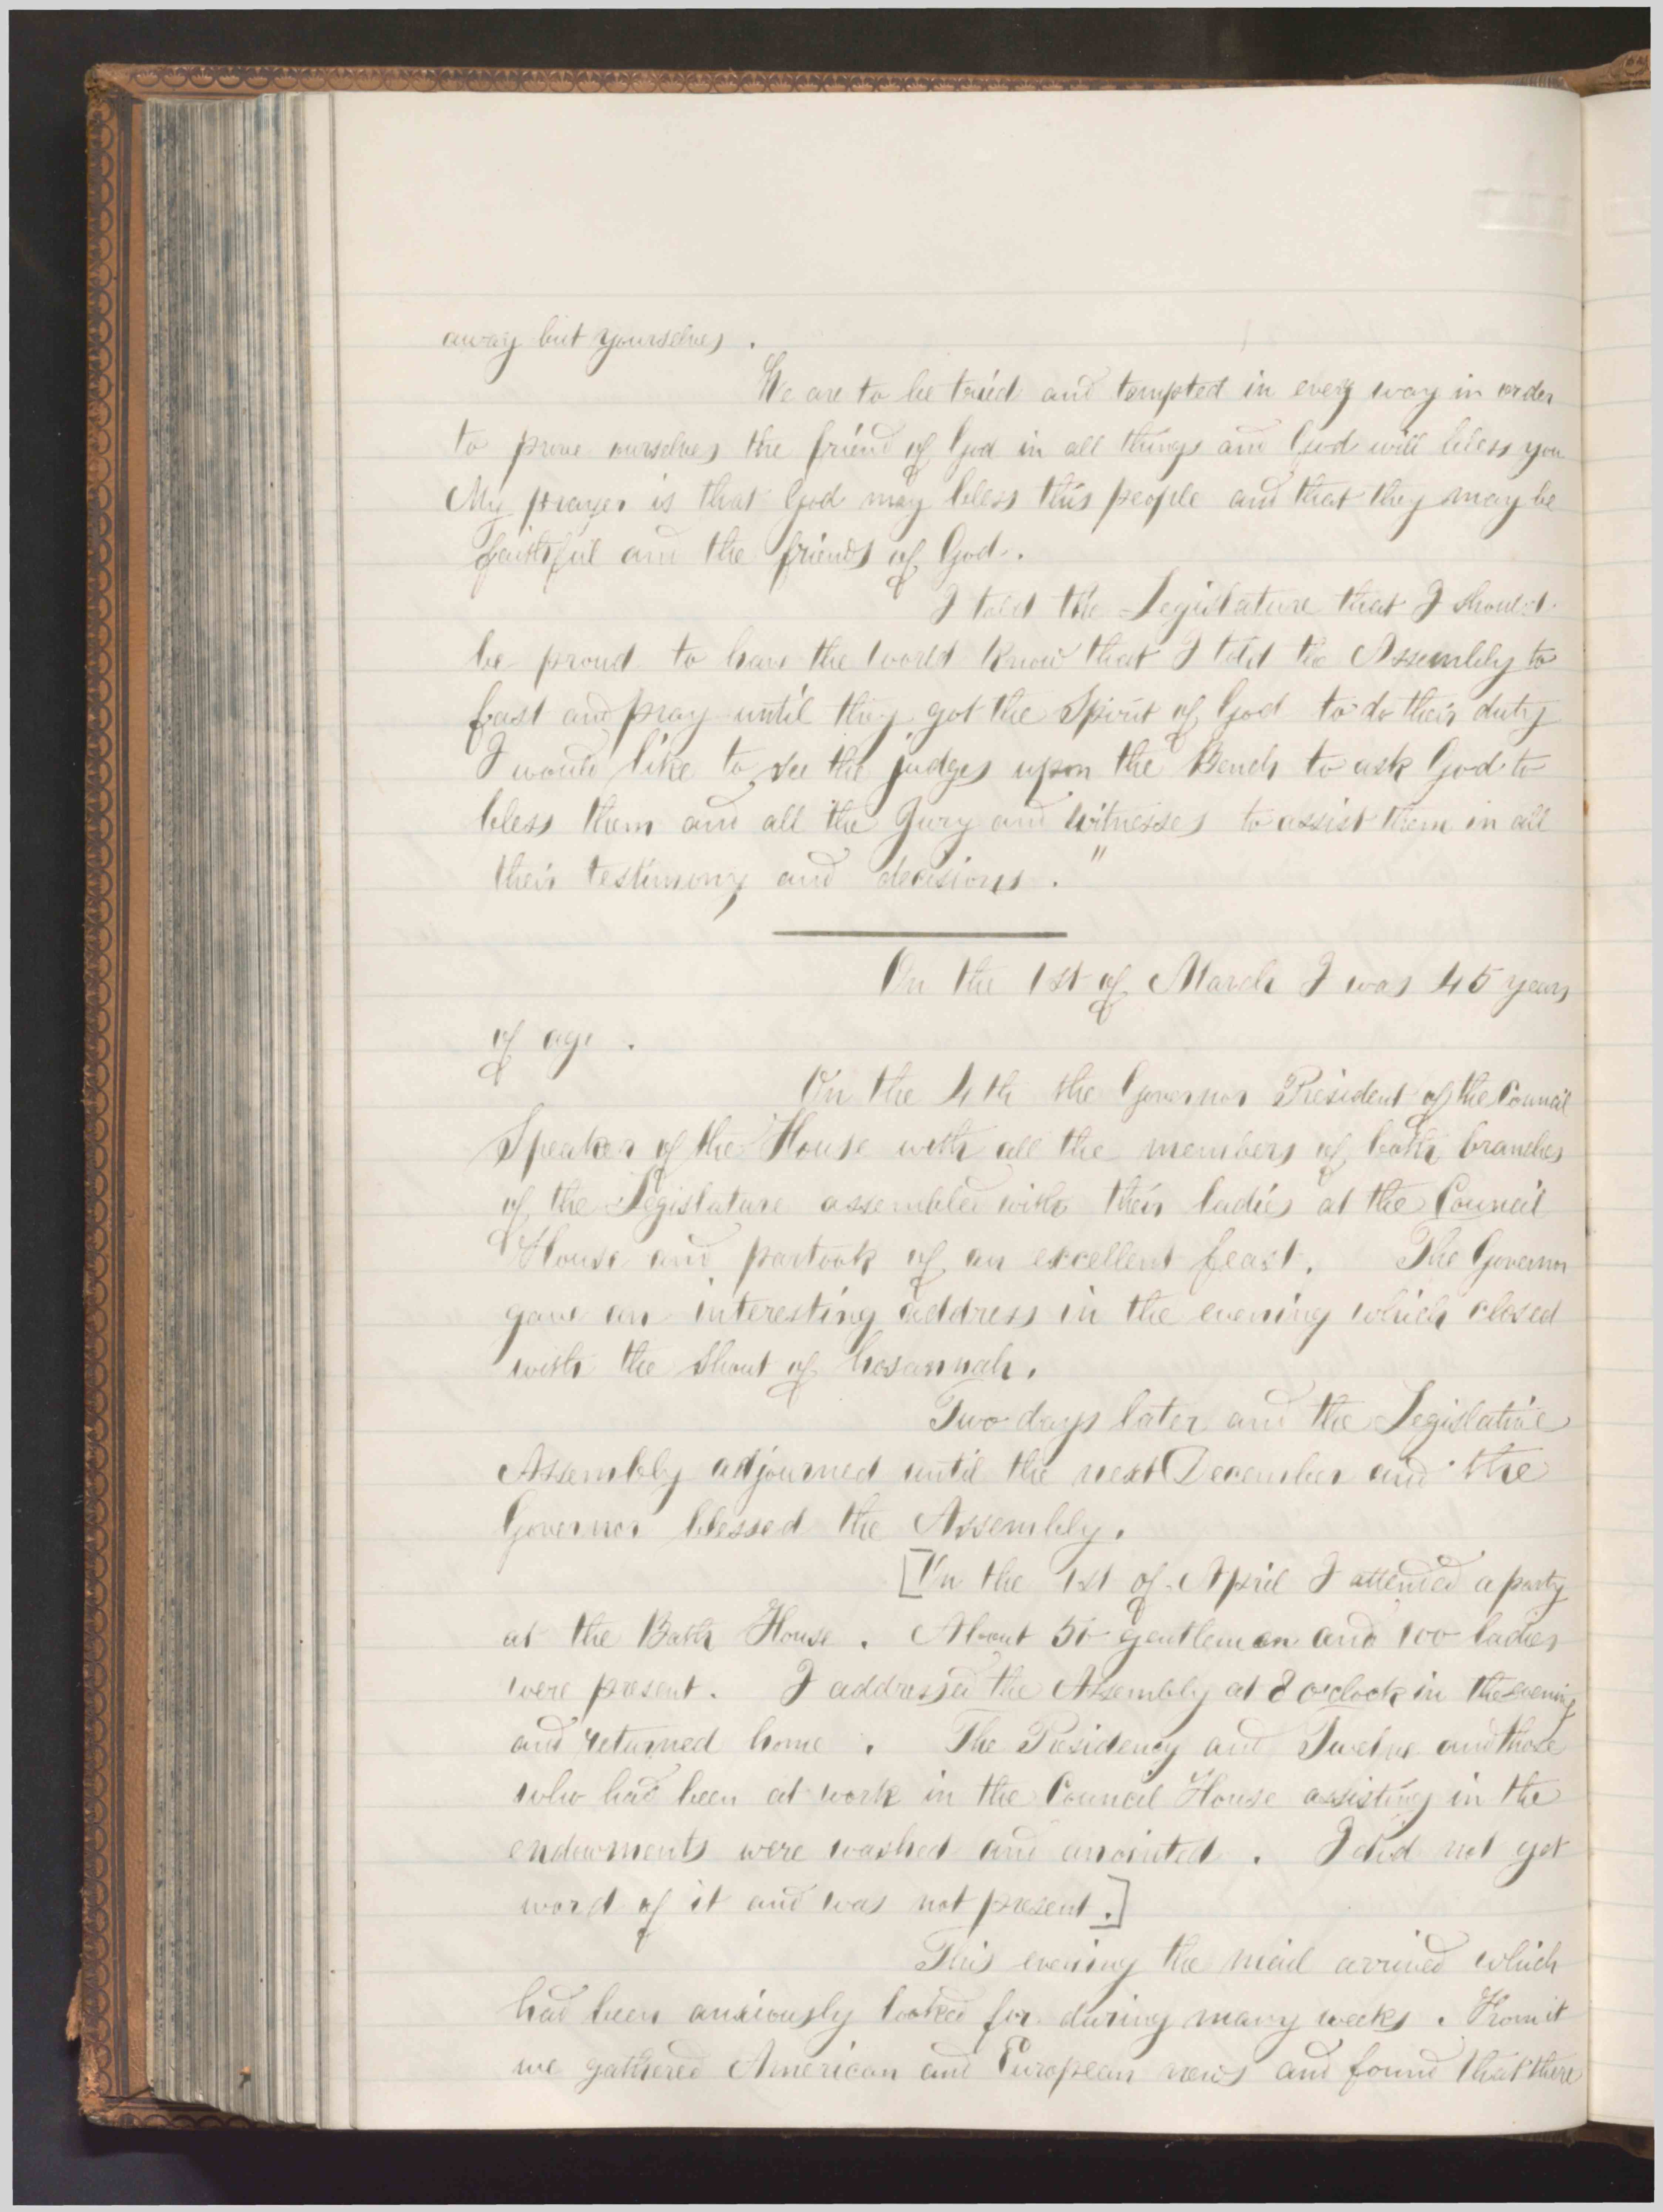 away but yourselves.
We are to be tried and tempted in every way in order
to prove ourselves the friend of God in all things and God will bless you
My prayer is that God may bless this people and that they may be
faithful and the friends of God.
I told the Legislature that I should
be proud to have the world know that I told the Assembly to
fast and pray until they got the Spirit of God to do their duty
I would like to see the judges upon the Bench to ask God to
bless them and all the Jury and witnesses to assist them in all
their testimony and decisions."
On the 1st of March I was 45 years
of age.
On the 4th the Governor President of the Council
Speaker of the House with all the members of both branches
of the Legislature assembled with their ladies at the Council
House and partook of an excellent feast. The Governor
gave an interesting address in the evening which closed
with the shout of hosannah.
Two days later and the Legislative
Assembly adjourned until the next December and the
Governor blessed the Assembly.
[On the 1st of April I attended a party
at the Bath House. About 50 gentlemen and 100 ladies
were present. I addressed the Assembly at 8 o'clock in the evening
and returned home. The Presidency and Twelve and those
who had been at work in the Council House assisting in the
endowments were washed and anointed. I did not get
word of it and was not present.]
This evening the mail arrived which
had been anxiously looked for during many weeks. From it
we gathered American and European news and found that there